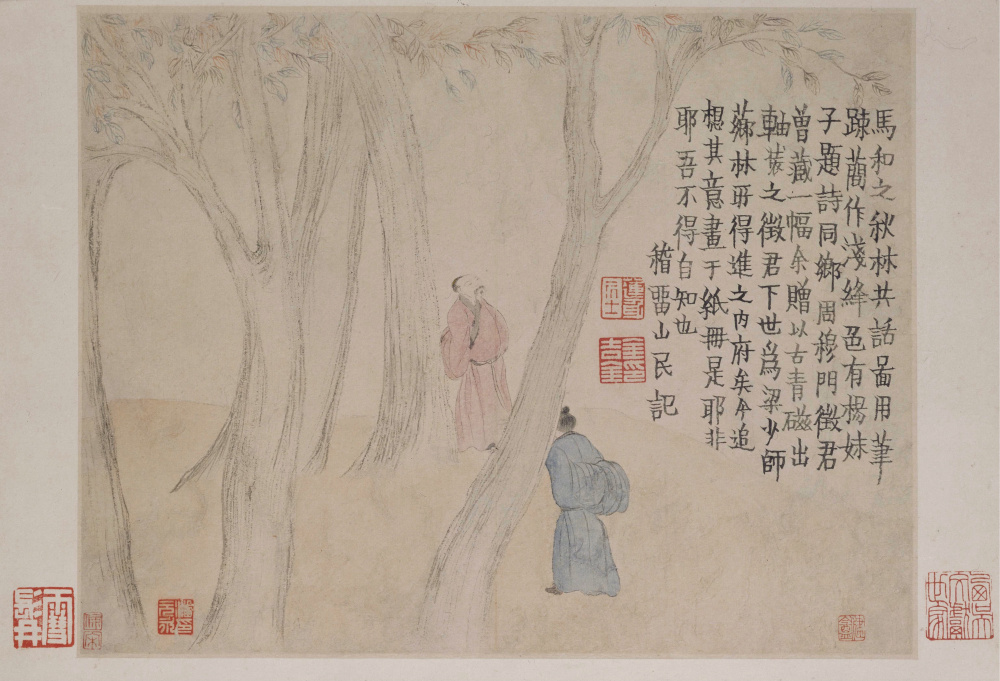 馬和之秋林共話啚用筆
踈蕳作淺絳色有楊妹
子題詩同鄉周穆門徵君
曽藏一幅余贈以古青磁出
軸裝之徵君下世爲梁少師
薌林所得進之内府矣今追
想其意畫于紙冊是耶非
耶吾不得自知也
稽畱山民記
金吉金印